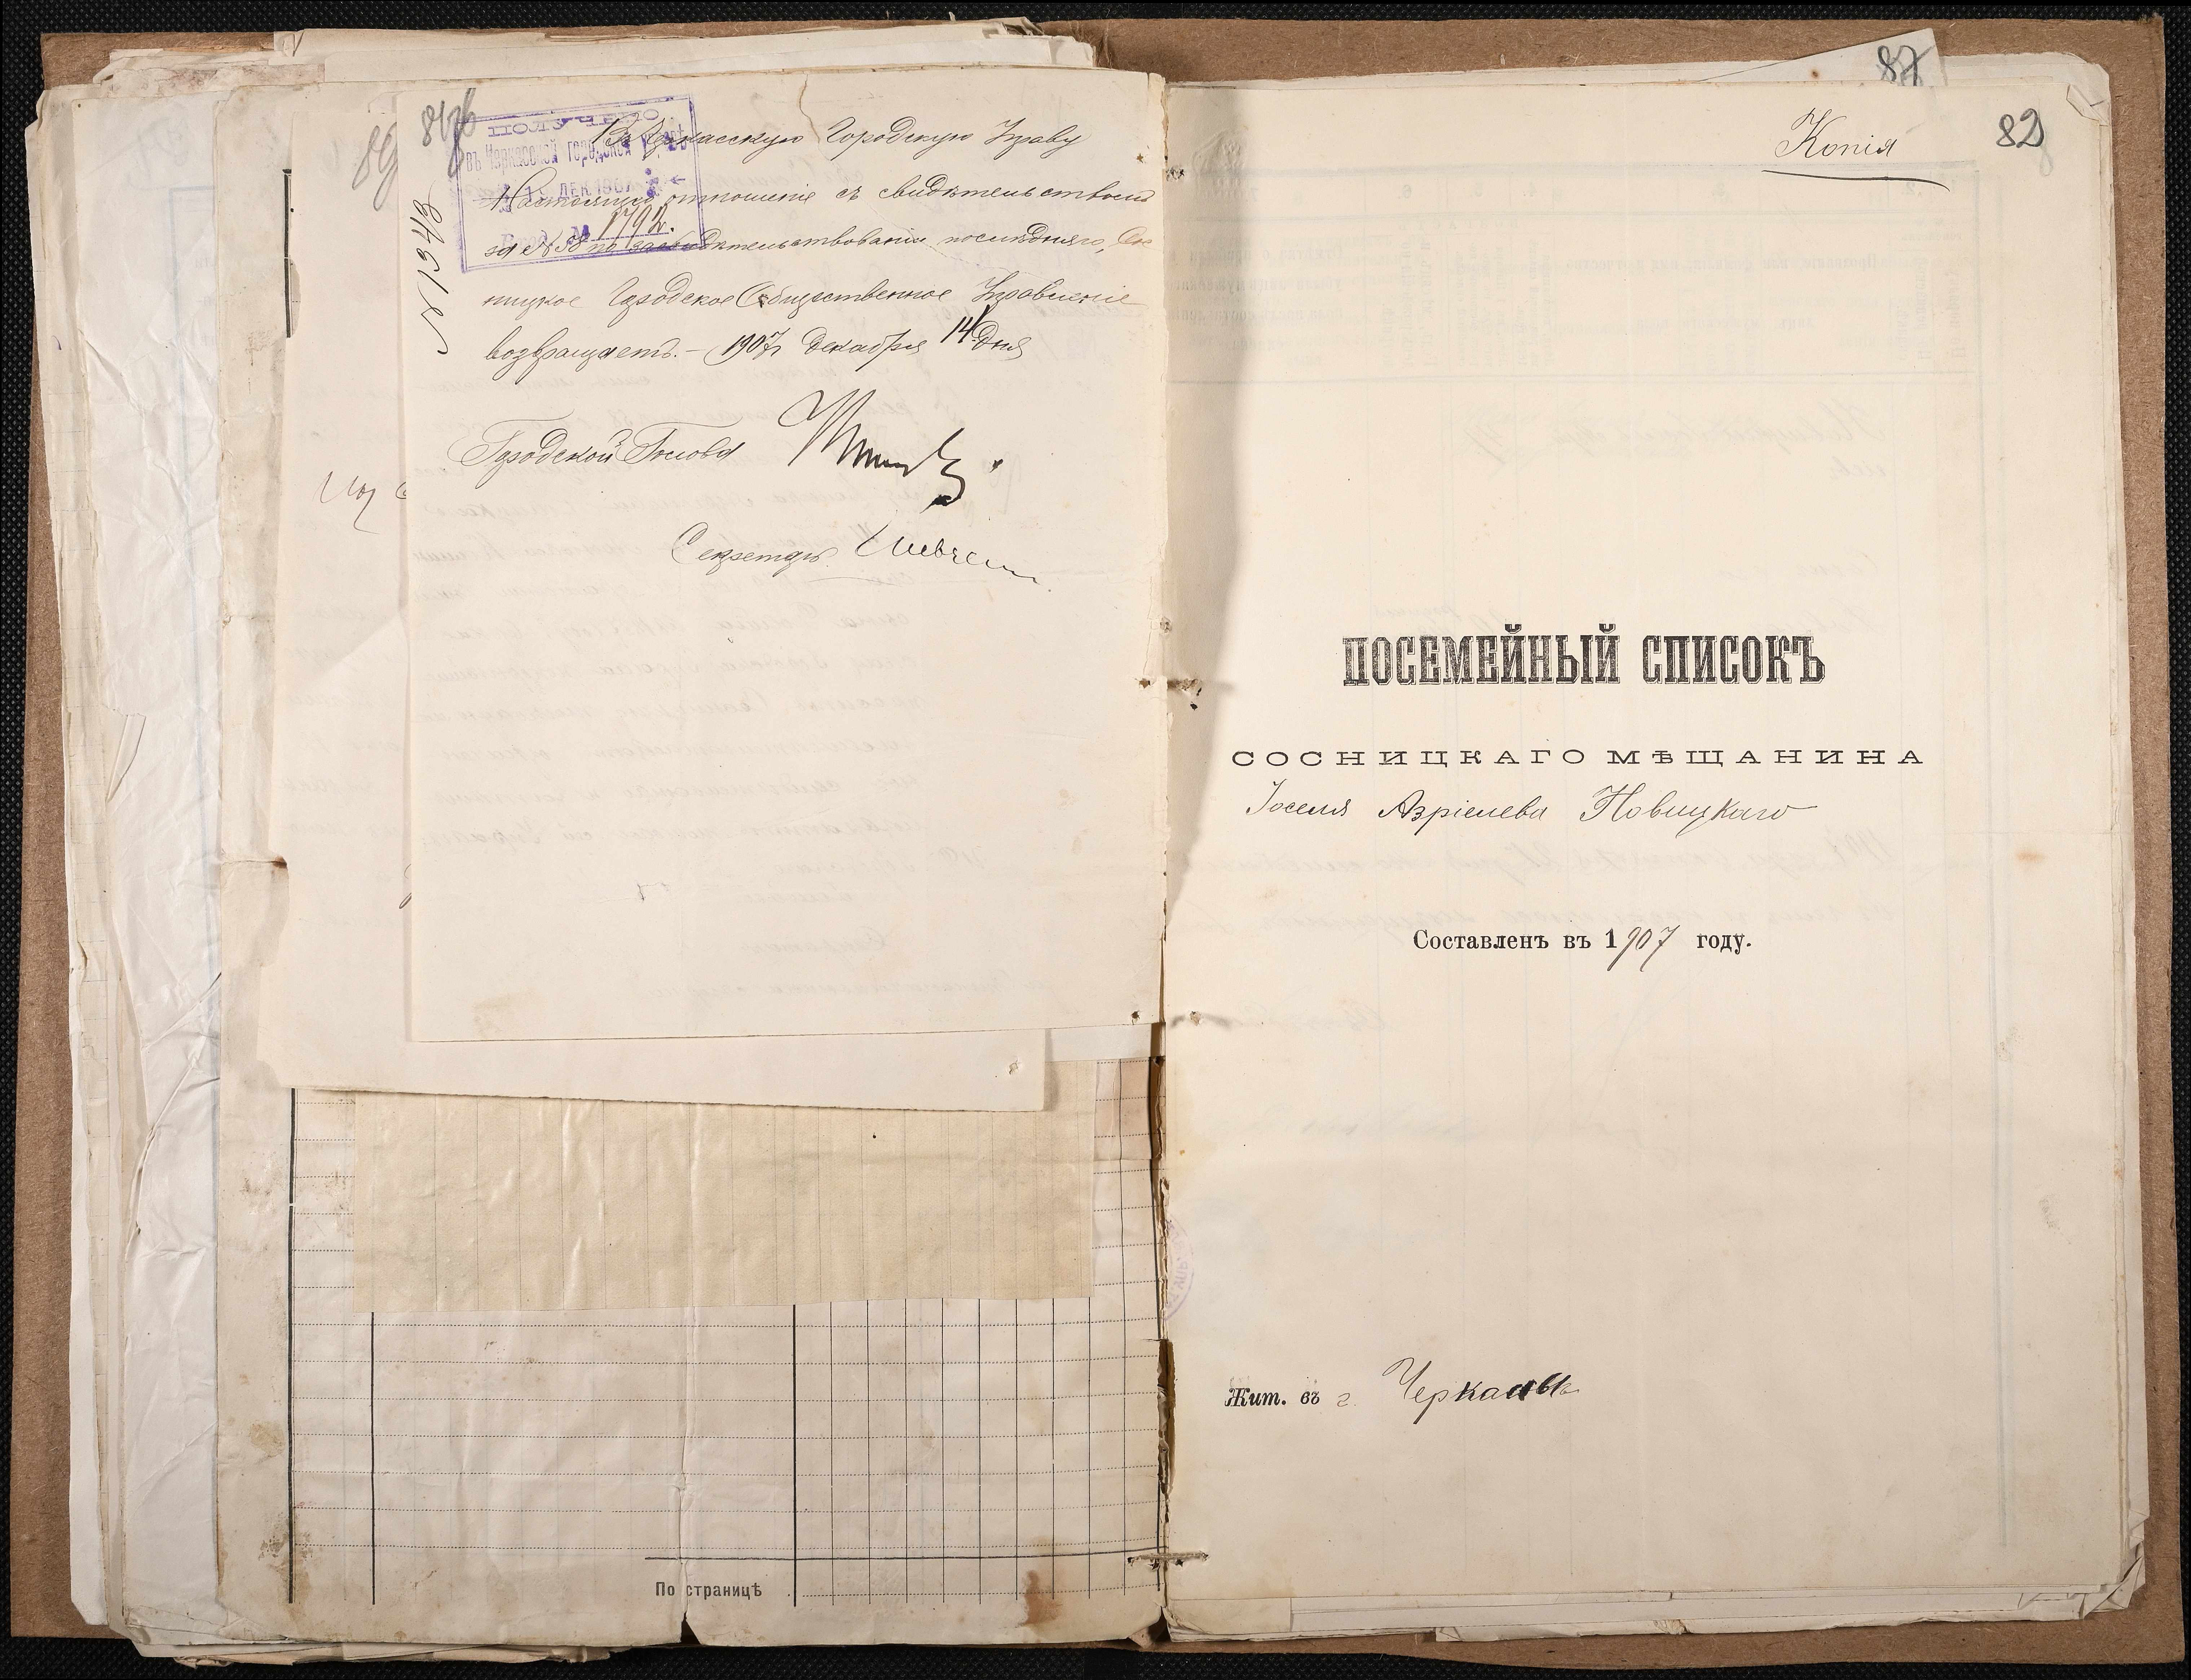 ПОЛУЧЕНО
въ Черкасской городской Управѣ
15 ДЕК 1907
Вход. № 1792.
Въ Черкасскую Городскую Управу
Настоящее отношеніе съ свидѣтельствомъ
за № 58 по засвидѣтельствованіи послѣдняго, Сос
ницкое Городское Общественное Управленіе
возвращаетъ. – 1907 г. Декабря 14 дня
№ 1343
Городской Голова
Секретарь
По страницѣ
87
82
Копія
ПОСЕМЕЙНЫЙ СПИСОКЪ
СОСНИЦКАГО МѢЩАНИНА
Іоселя Азріелева Новицкаго
Составленъ въ 1907 году.
Жит. въ г. Черкассы